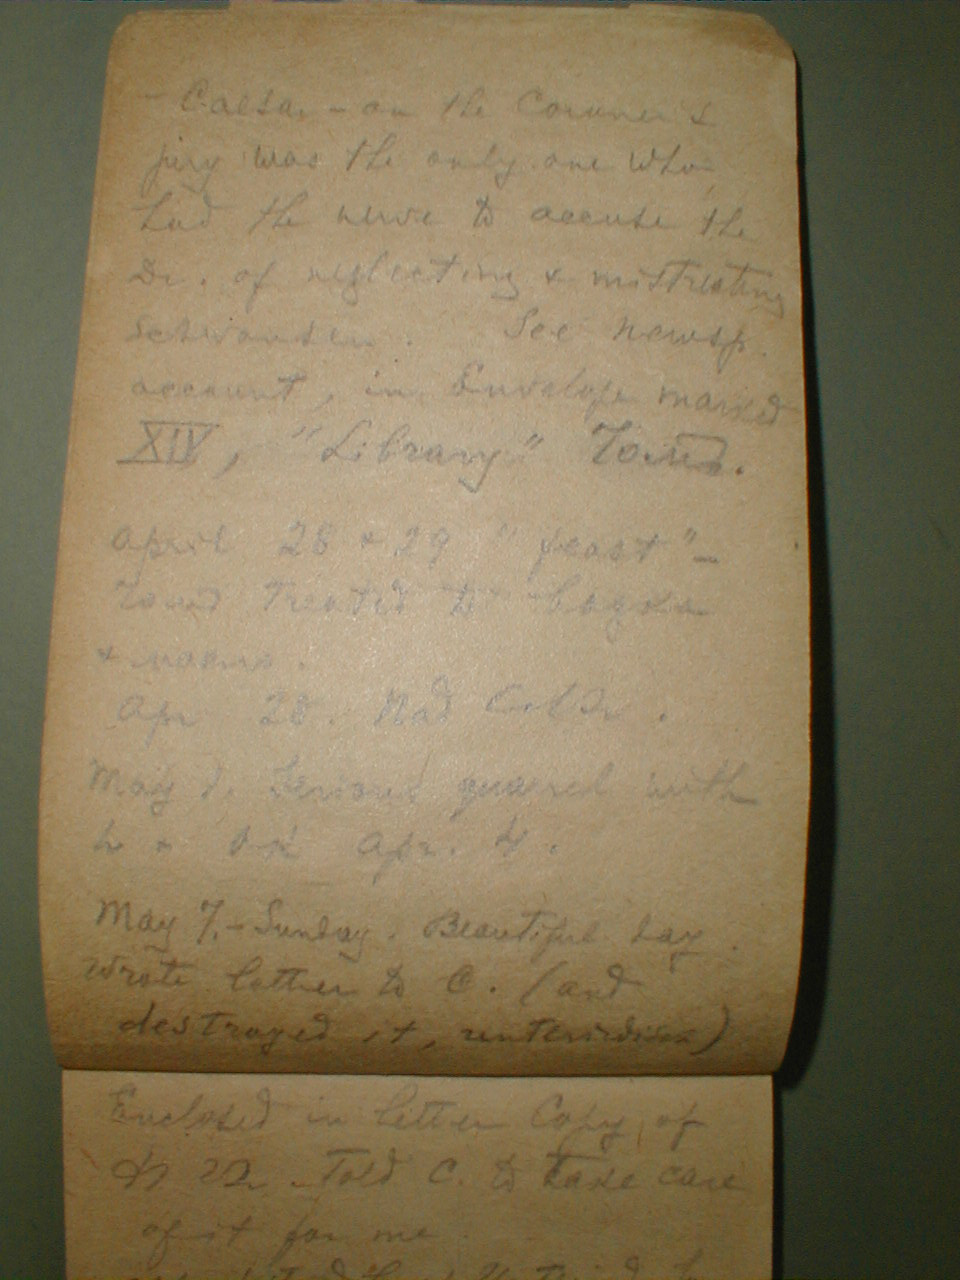 - Caesar - on the Coroner's
jury was the only one who
had the nerve to accuse the
Dr. of neglecting & mistreating
See Newsp.
account, in Envelope marked
XIV, "Library" Found.
April 28 & 29 "feast" -
treated to
&
Apr 28. Had Cold.
May 1. Serious quarrel with
Apr. 4.
May 7. - Sunday. Beautiful day.
Wrote letter to C. (and
destroyed it,
Enclosed in letter Copy of
22. Told C. to take care
of it for me